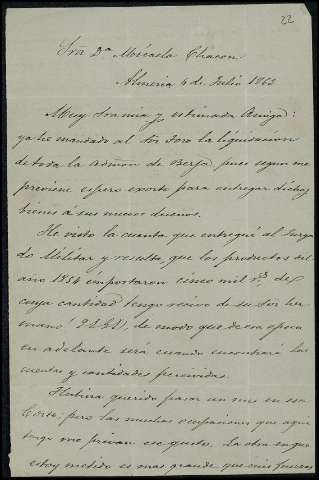 22
Sra Dª Micaela Chacon
Almeria 4 de Julio 1862
Muy Sra mia y estimada Amiga:
ya he mandado al Sor Toro la liquidacion
de toda la admon de Berja, pues segun me
previene espero exorto para entregar dichos
bienes á sus nuevos dueños.
He visto la cuenta que entregué al Juzga
do Militar y resulta, que los productos del
año 1854 importaron cinco mil rs. de
cuya cantidad tengo recivo de su Sor her
mano de modo que de esa epoca
en adelante será cuando encontrará las
cuentas y cantidades percividas.
Hubiera querido pasar un mes en esa
Corte; pero las muchas ocupaciones que aqui
tengo me privan ese gusto. La obra en que
estoy metido es mas grande que mis fuerzas